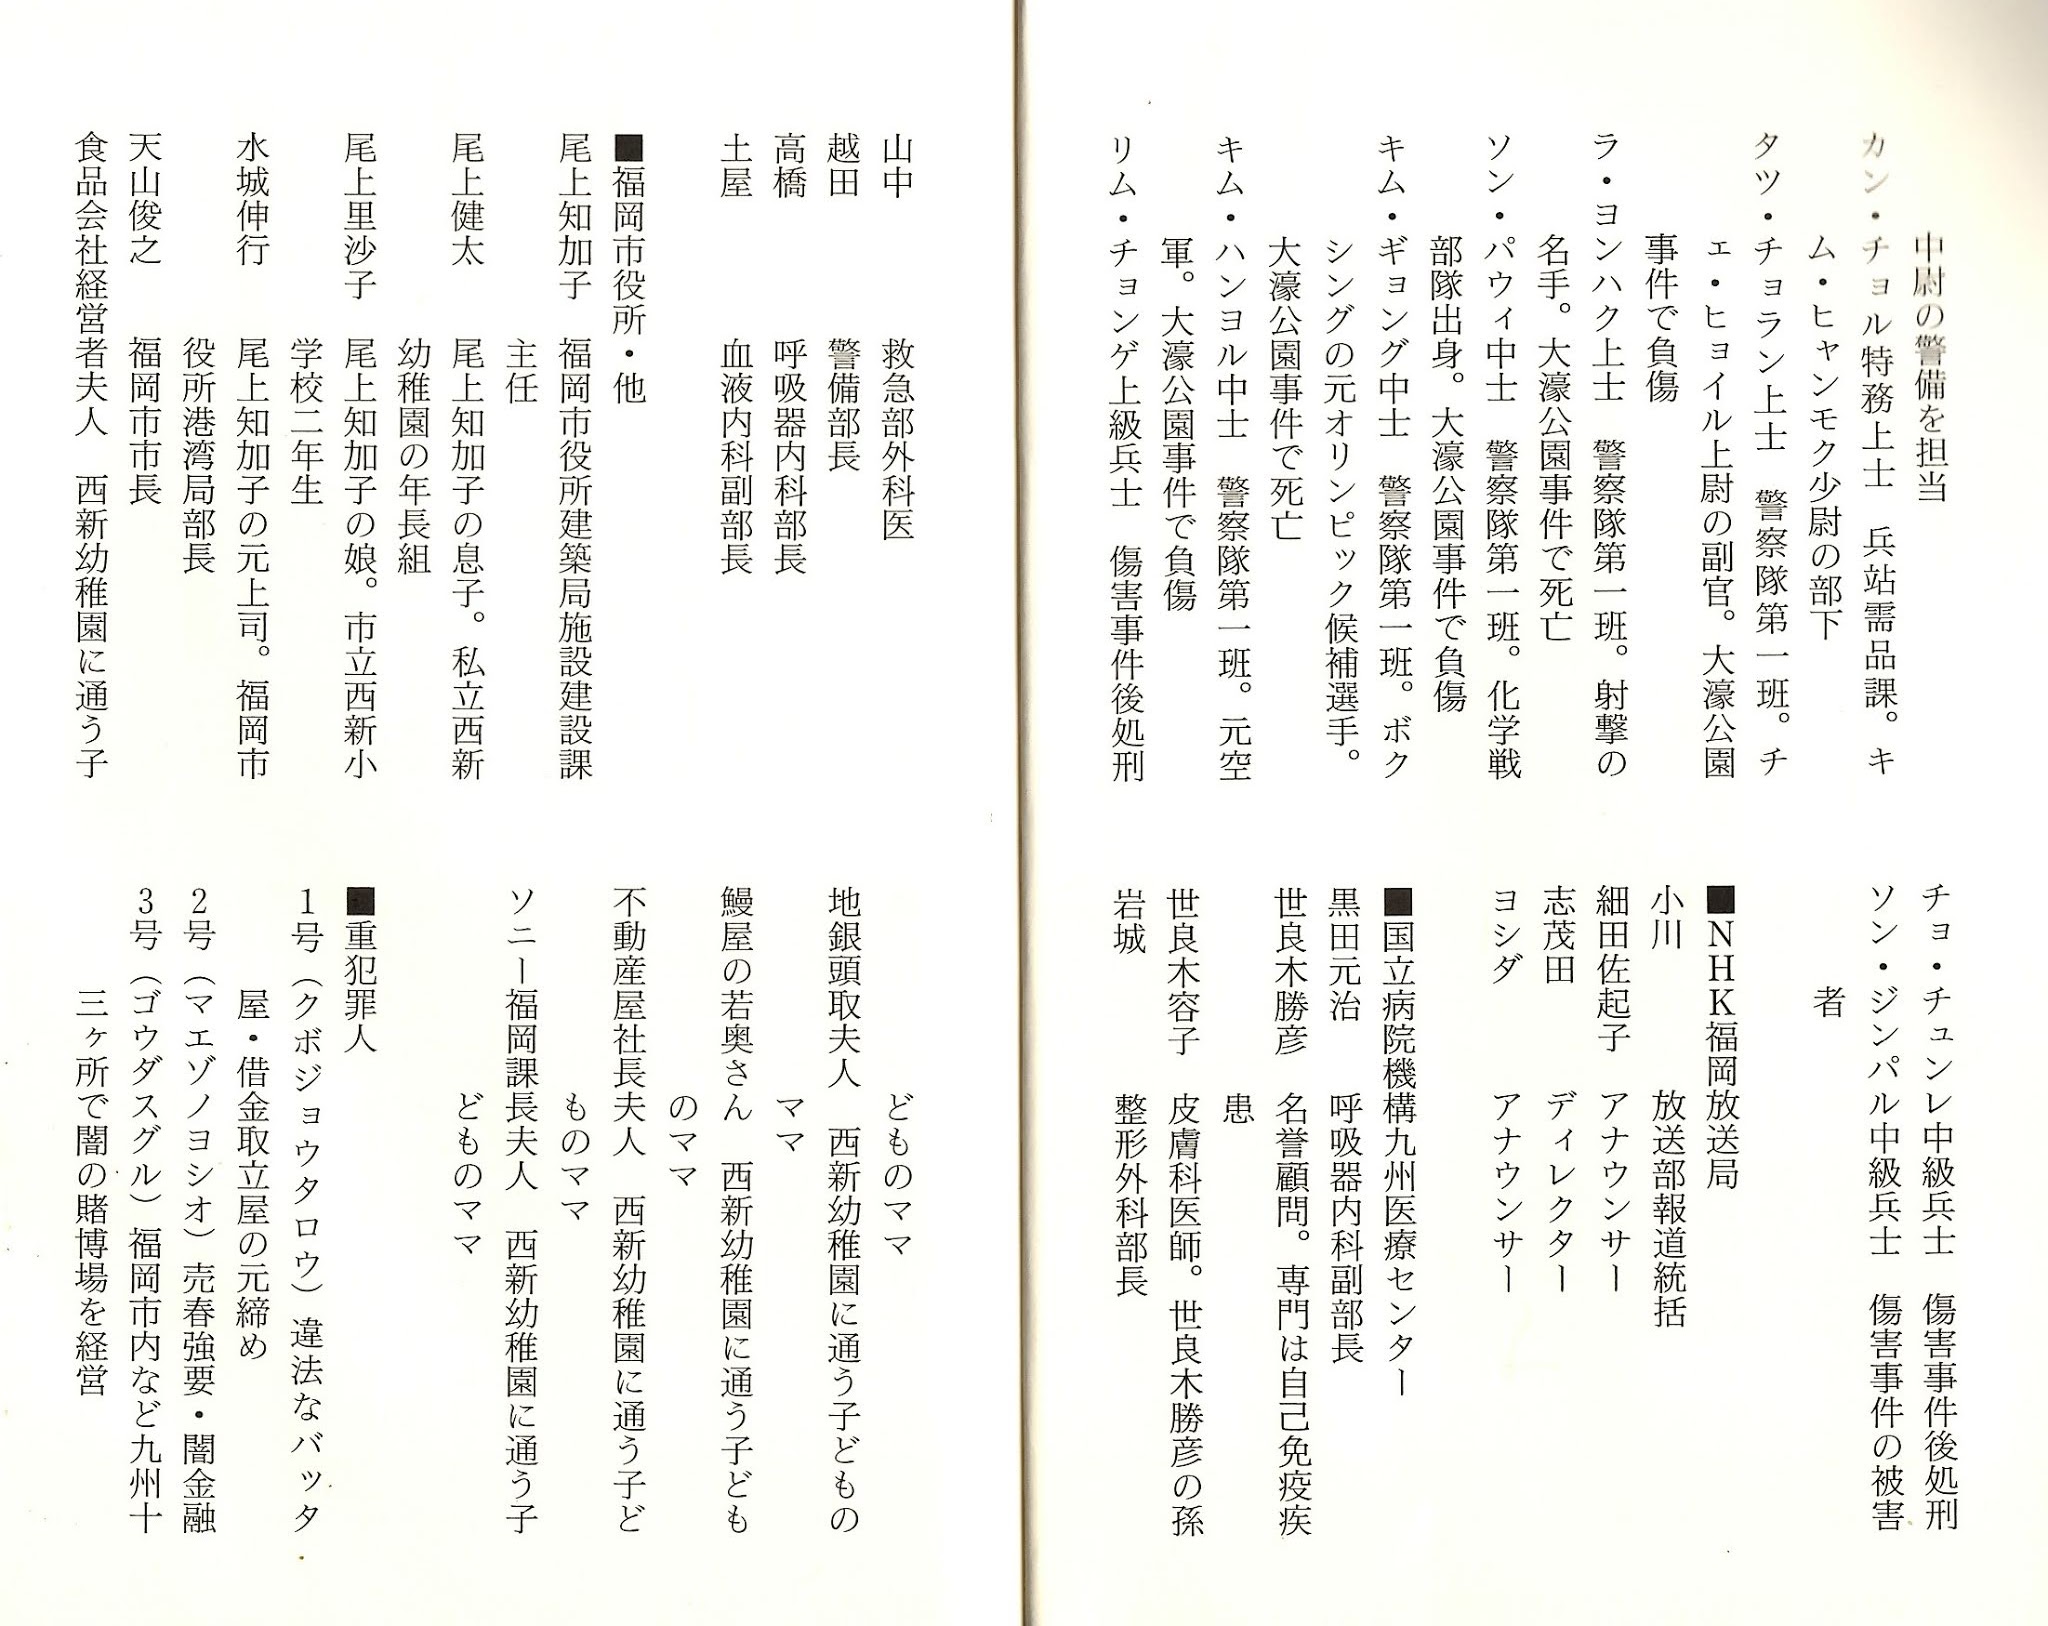 中尉の警備を担当
カン・チョル特務上士　兵站需品課。キ
ム・ヒャンモク少尉の部下
タツ・チョラン上士　警察隊第一班。チ
ェ・ヒョイル上尉の副官。大濠公園
事件で負傷
ラ・ヨンハク上士　警察隊第一班。射撃の
名手。大濠公園事件で死亡
ソン・パウィ中士　警察隊第一班。化学戦
部隊出身。大濠公園事件で負傷
キム・ギョング中士　警察隊第一班。ボク
シングの元オリンピック候補選手。
大濠公園事件で死亡
キム・ハンヨル中士　警察隊第一班。元空
軍。大濠公園事件で負傷
リム・チョンゲ上級兵士　傷害事件後処刑
チョ・チュンレ中級兵士　傷害事件後処刑
ソン・ジンパル中級兵士　傷害事件の被害
者
■NHK福岡放送局
小川　放送部報道統括
細田佐起子　アナウンサー
志茂田　ディレクター
ヨシダ　アナウンサー
■国立病院機構九州医療センター
黒田元治　呼吸器内科副部長
世良木勝彦　名誉顧問。専門は自己免疫疾
患
世良木容子　皮膚科医師。世良木勝彦の孫
岩城　整形外科部長
山中　救急部外科医
越田　警備部長
高橋　呼吸器内科部長
土屋　血液内科副部長
■福岡市役所・他
尾上知加子　福岡市役所建築局施設建設課
主任
尾上健太　尾上知加子の息子。私立西新
幼稚園の年長組
尾上里沙子　尾上知加子の娘。市立西新小
学校二年生
水城伸行　尾上知加子の元上司。福岡市
役所港湾局部長
天山俊之　福岡市市長
食品会社経営者夫人　西新幼稚園に通う子
どものママ
地銀頭取夫人　西新幼稚園に通う子どもの
ママ
鰻屋の若奥さん　西新幼稚園に通う子ども
のママ
不動産屋社長夫人　西新幼稚園に通う子ど
ものママ
ソニー福岡課長夫人　西新幼稚園に通う子
どものママ
■重犯罪人
1号（クボジョウタロウ）違法なバッタ
屋・借金取立屋の元締め
2号（マエゾノヨシオ）売春強要・闇金融
3号（ゴウダスグル）福岡市内など九州十
三ヶ所で闇の賭博場を経営